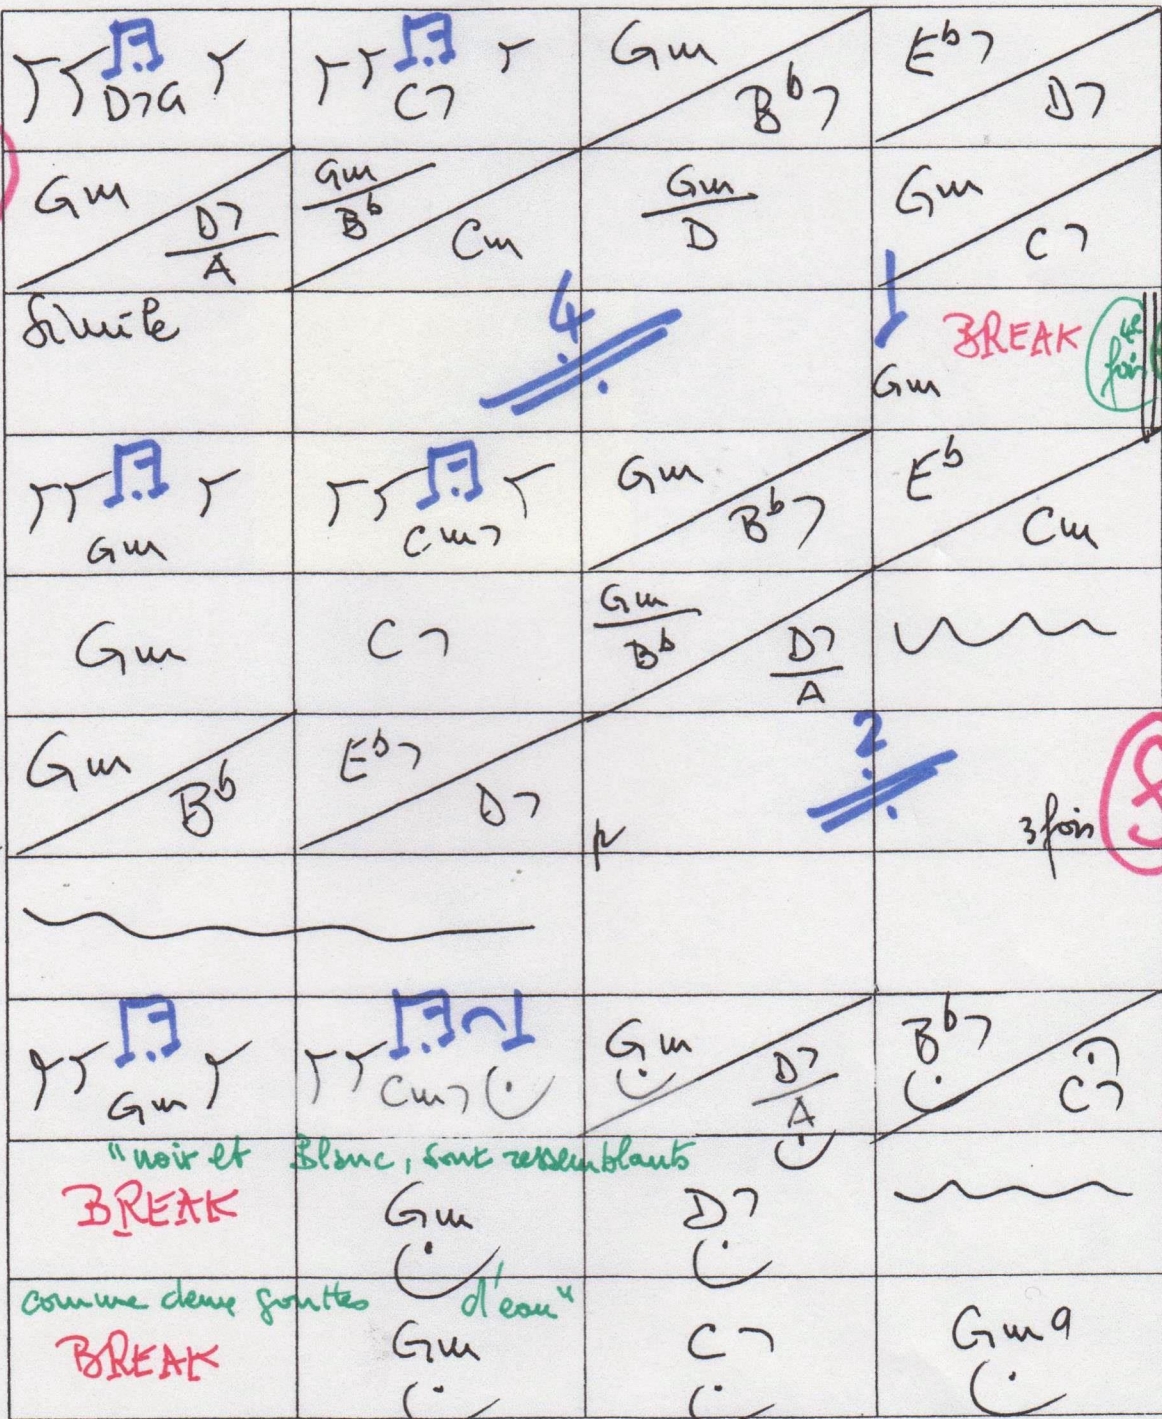 D7G C7 Gm B♭7 E♭7 D7
Gm D7/A Gm/B♭ Cm Gm/D Gm C7
Simile 4 Gm BREAK 4e fois
Gm Cm7 Gm B♭7 E♭ Cm
Gm C7 Gm/B♭ D7/A
Gm B♭ E♭7 D7 2 3 fois
Gm Cm7 Gm D7/A B♭7 C7
"noir et Blanc, sont ressemblants
BREAK Gm D7
comme deux gouttes d'eau"
BREAK Gm C7 Gm9